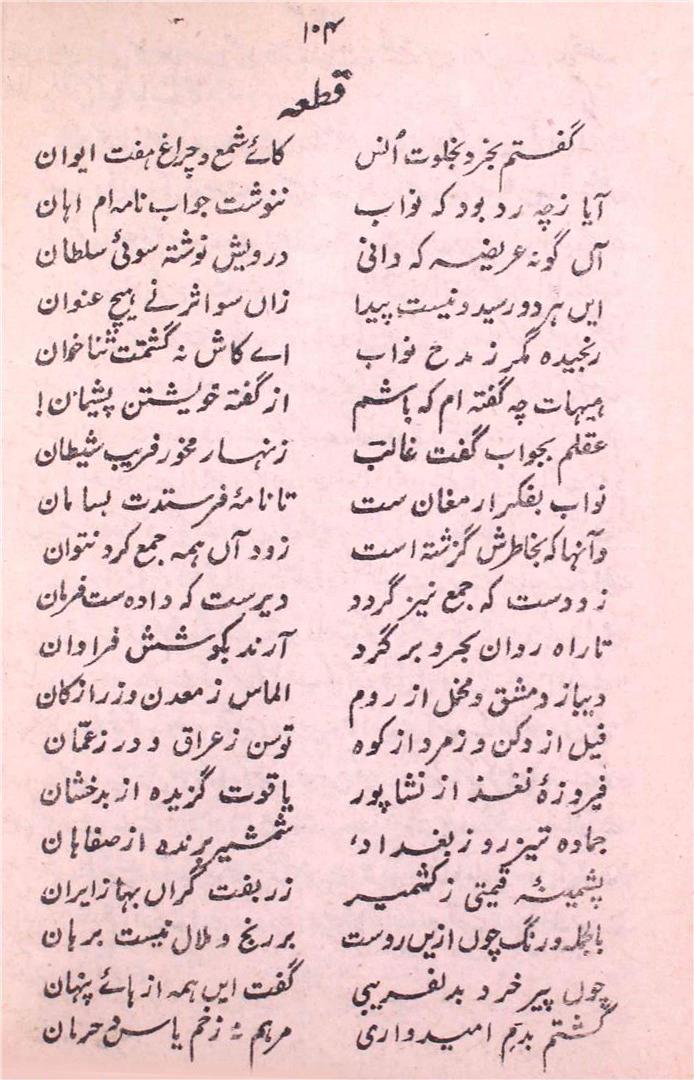 ۱۰۴
قطعہ
گفتم بخرد بخلوت اُنس کائے شمع و چراغ ہفت ایوان
آیا زچہ رد بود کہ نواب ننوشت جواب نامہ ام اہان
آں گونہ عریضہ کہ دانی درویش نوشتہ سوئی سلطان
ایں ہر دو رسید و نیست پیدا زاں سو اثر نے ہیچ عنوان
رنجیدہ مگر ز مدح نواب اے کاش نہ گشتمت ثنا خوان
ہیہات چہ گفتہ ام کہ باشم از گفتہ خویشتن پشیمان!
عقلم بجواب گفت غالب زنہار مخور فریب شیطان
نواب بفکر ارمغان ست تا نامۂ فرستدت بسامان
وآنہا کہ بخاطرش گزشتہ است زود آں ہمہ جمع کرد نتوان
زودست کہ جمع نیز گردد دیرست کہ دادہ ست فرمان
تا راہ روان بحر و بر گرد آرند بکوشش فراوان
دیبا ز دمشق و مخمل از روم الماس ز معدن و زر از کان
فیل از دکن و زمرد از کوہ توسن ز عراق و در ز عمّان
فیروزۂ نغز از نشاپور یاقوت گزیدہ از بدخشان
جمادہ تیز رو ز بغداد، شمشیر برندہ از صفاہان
پشمینۂ قیمتی ز کشمیر زربفت گراں بہا ز ایران
بالجملہ درنگ چوں ازیں روست بر رنج و ملال نیست برہان
چوں پیر خرد بدلفریبی گفت ایں ہمہ از ہائے پنہان
گشتم بدم امیدواری مرہم نہ زخم یاس و حرمان